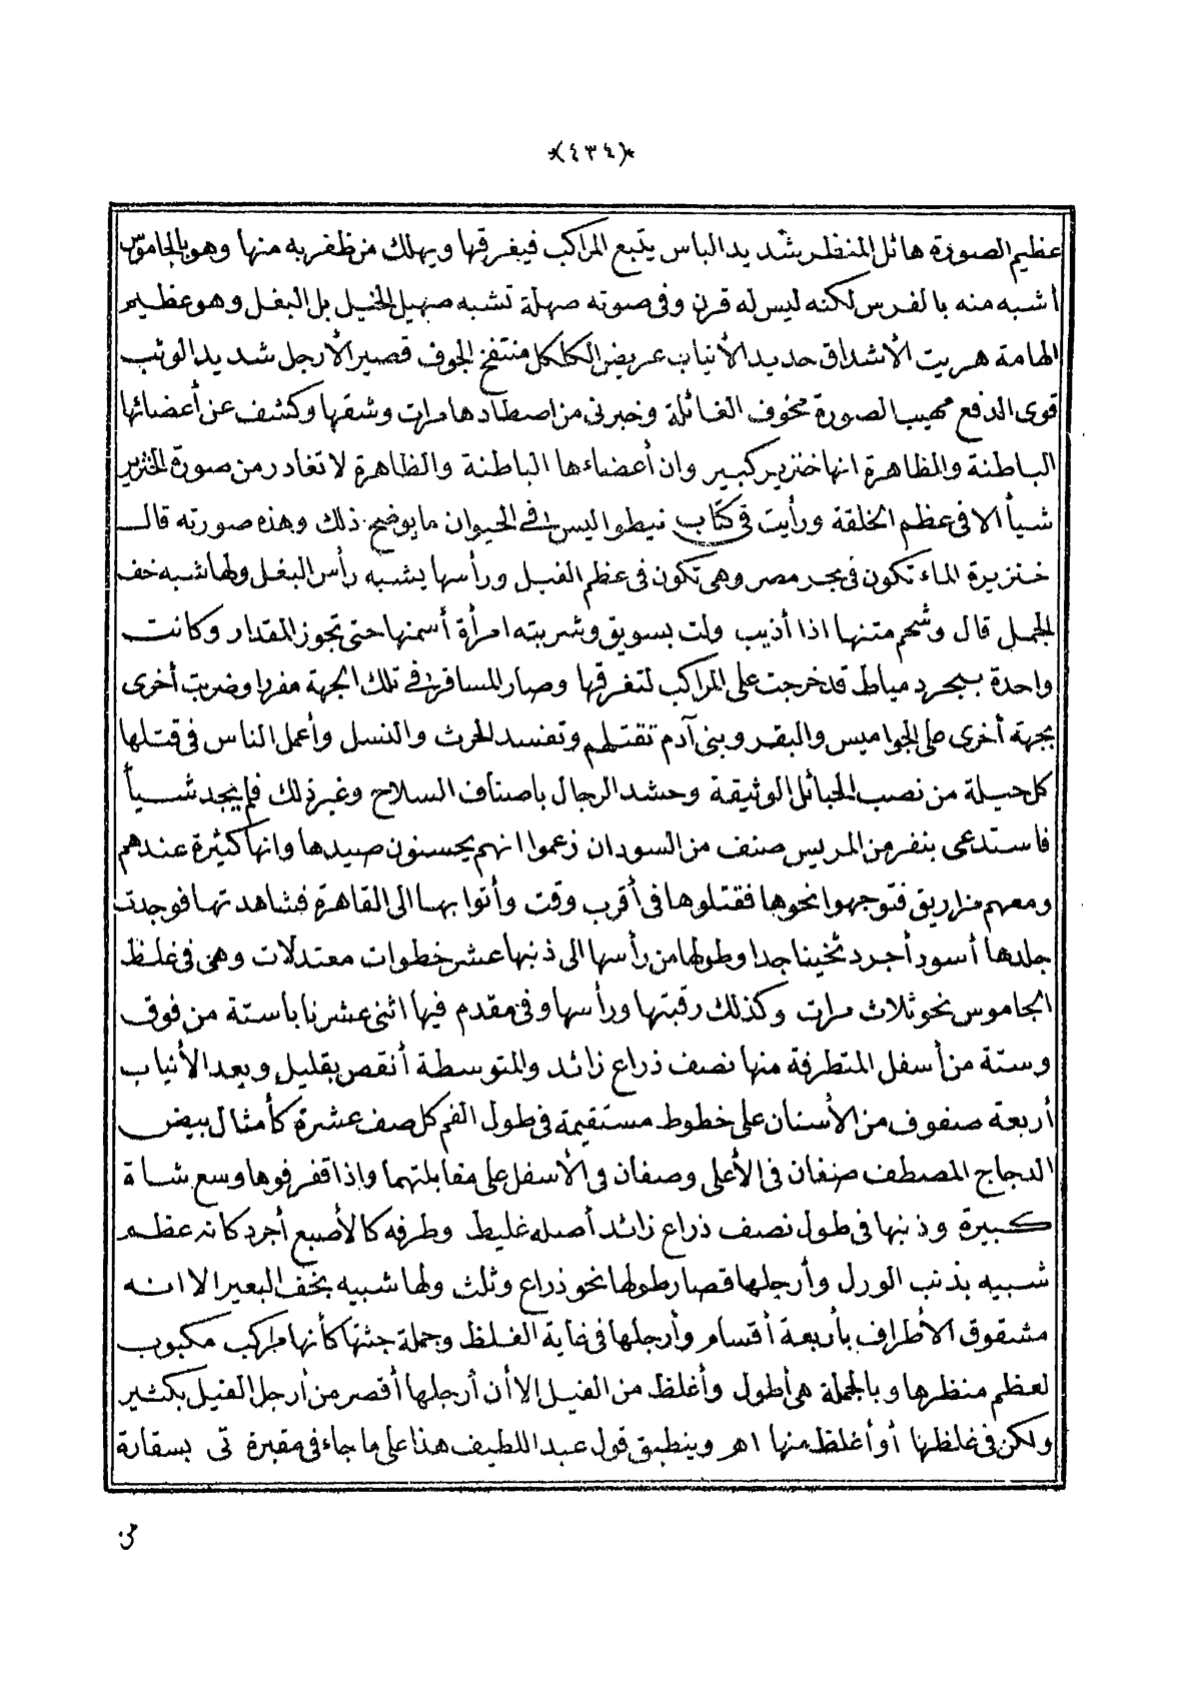 *(٤٣٤)*
عظيم الصورة هائل المنظر شديد الباس يتبع المراكب فيغرقها ويهلك من ظفر به منها وهو بالجاموس
أشبه منه بالفرس لكنه ليس له قرن وفى صوته صهلة تشبه صهيل الخيل بل البغل وهو عظيم
الهامة هريت الأشداق حديد الأنياب عريض الكلكل منتفخ الجوف قصير الأرجل شديد الوثب
قوى الدفع مهيب الصورة مخوف الغائلة وخبرنى من اصطادها مرات وشقها وكشف عن أعضائها
الباطنة والظاهرة انها خنزير كبير وان أعضاءها الباطنة والظاهرة لا تغادر من صورة الخنزير
شيأ الا فى عظم الخلقة ورأيت فى كتاب نيطواليس فى الحيوان ما يوضح ذلك وهذه صورته قال
خنزيرة الماء تكون فى بحر مصر وهى تكون فى عظم الفيل ورأسها يشبه رأس البغل ولها شبه خف
الجمل قال وشحم متنها اذا أذيب ولت بسويق وشربته امرأة أسمنها حتى تجوز المقدار وكانت
واحدة ببحر دمياط قد خرجت على المراكب لتغرقها وصار المسافر فى تلك الجهة مغررا وضربت أخرى
بجهة أخرى على الجواميس والبقر وبنى آدم تقتلهم وتفسد الحرث والنسل وأعمل الناس فى قتلها
كل حيلة من نصب الحبائل الوثيقة وحشد الرجال باصناف السلاح وغير ذلك فلم يجد شيأ
فاستدعى بنفر من المريس صنف من السودان زعموا انهم يحسنون صيدها وانها كثيرة عندهم
ومعهم مزاريق فتوجهوا نحوها فقتلوها فى أقرب وقت وأتوا بها الى القاهرة فشاهدتها فوجدت
جلدها أسود أجرد ثخينا جدا وطولها من رأسها الى ذنبها عشر خطوات معتدلات وهى فى غلظ
الجاموس نحو ثلاث مرات وكذلك رقبتها ورأسها وفى مقدم فيها اثنى عشر نابا ستة من فوق
وستة من أسفل المتطرفة منها نصف ذراع زائد والمتوسطة أنقص بقليل وبعد الأنياب
أربعة صفوف من الأسنان على خطوط مستقيمة فى طول الفم كل صف عشرة كأمثال بيض
الدجاج المصطف صفان فى الأعلى وصفان فى الأسفل على مقابلتهما واذا قفر فوها وسع شاة
كبيرة وذنبها فى طول نصف ذراع زائد أصله غليظ وطرفه كالأصبع أجرد كانه عظم
شبيه بذنب الورل وأرجلها قصار طولها نحو ذراع وثلث ولها شبيه بخف البعير الا انه
مشقوق الأطراف بأربعة أقسام وأرجلها فى غاية الغلظ وجملة جثتها كأنها مركب مكبوب
لعظم منظرها وبالجملة هى أطول وأغلظ من الفيل الا أن أرجلها أقصر من أرجل الفيل بكثير
ولكن فى غلظها أو أغلظ منها اهـ وينطبق قول عبد اللطيف هذا على ما جاء فى مقبرة تى بسقارة